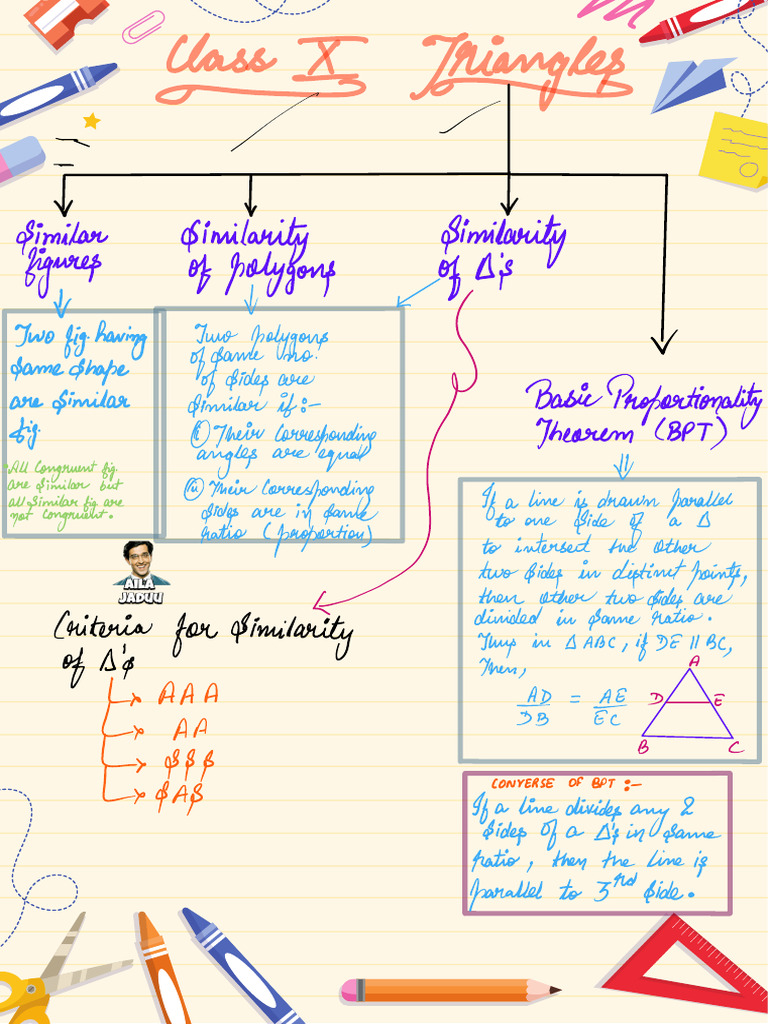 Class X Triangles
Similar
figures
Similarity
of polygons
Similarity
of Δ's
Two fig. having
same shape
are similar
fig.
All Congruent fig.
are similar but
all similar fig are
not congruent.
Two polygons
of same no.
of sides are
similar if:-
(i) Their corresponding
angles are equal
(ii) Their corresponding
sides are in same
ratio (proportion)
Basic Proportionality
Theorem (BPT)
If a line is drawn parallel
to one side of a Δ
to intersect the other
two sides in distinct points,
then other two sides are
divided in same ratio.
Thus in Δ ABC, if DE || BC,
Then,
AD/DB = AE/EC
A
D
E
B
C
AILA
JADUU
Criteria for Similarity
of Δ's
AAA
AA
SSS
SAS
CONVERSE OF BPT :-
If a line divides any 2
sides of a Δ's in same
ratio, then the line is
parallel to 3rd side.